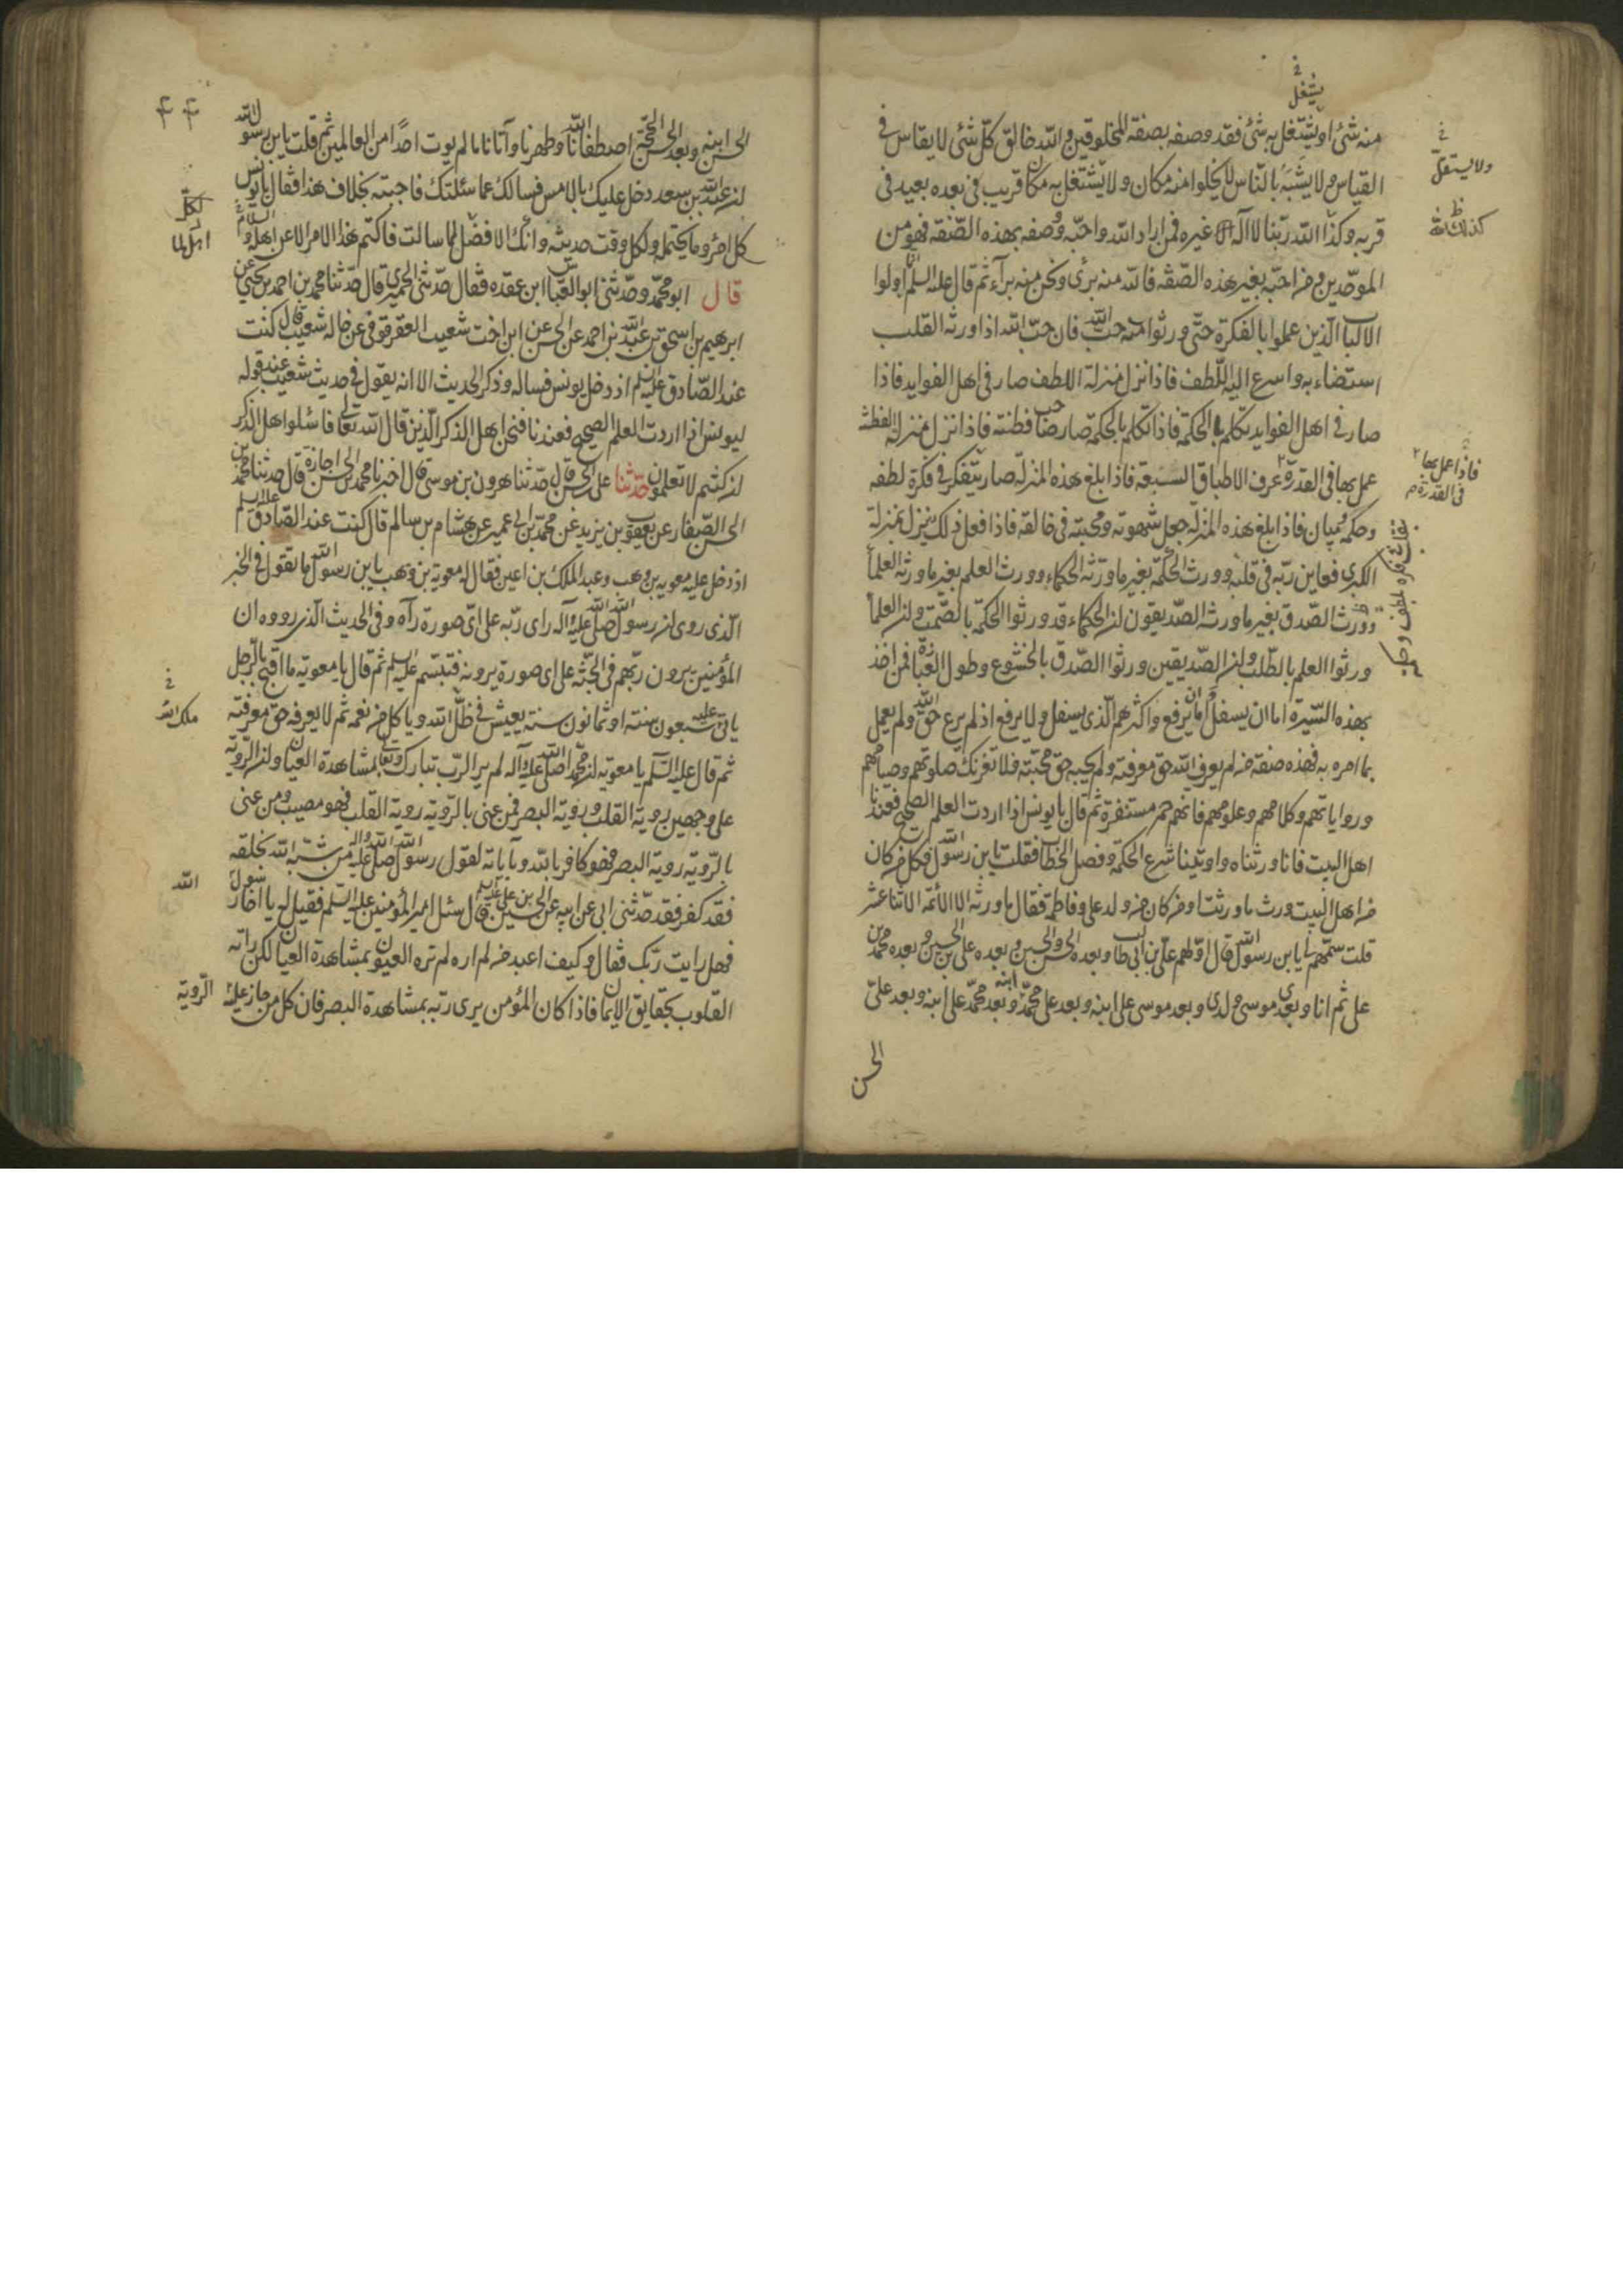 يشتغل
منه شئ او يشتغل به شئ فقد وصفه بصفة المخلوقين والله خالق كل شئ لا يقاس في
القياس ولا يشبه بالناس لا يخلوا منه مكان ولا يشتغل به مكان قريب في بعده بعيد في
قربه وكذا الله ربنا لا اله غيره فمن اراد الله واحبه وصفه بهذه الصفة فهو من
الموحدين ومن احبه بغير هذه الصفة فالله منه برئ ونحن منه برآء ثم قال عليه السلم ان اولوا
الالباب الذين عملوا بالفكرة حتى ورثوا منه حب الله فان حب الله اذا ورثه القلب
استضاء به واسرع اليه اللطف فاذا نزل منزلة اللطف صار في اهل الفوايد فاذا
صار في اهل الفوايد تكلم بالحكمة فاذا تكلم بالحكمة صار صاحب فطنة فاذا نزل منزلة الفطنة
عمل بها في القدرة عرف الاطباق السبعة فاذا بلغ هذه المنزلة صار يتفكر في فكرة لطفه
وحكمة وبيان فاذا بلغ هذه المنزلة جعل شهوته ومحبته في خالقه فاذا فعل ذلك ينزل بمنزلة
الكبرى فعاين ربه في قلبه وورث الحكمة بغير ما ورثه الحكماء وورث العلم بغير ما ورثه العلما
وورث الصدق بغير ما ورثه الصديقون ان الحكماء قد ورثوا الحكمة بالصمت وان العلما
ورثوا العلم بالطلب وان الصديقين ورثوا الصدق بالخشوع وطول العبادة فمن اخذ
بهذه السيرة اما ان يسفل واما ان يرفع واكثرهم الذي يسفل ولا يرفع اذ لم يرع حق الله ولم يعمل
بما امره به فهذه صفة من لم يعرف الله حق معرفته ولم يحبه حق محبته فلا تغرنك صلوتهم وصيامهم
ورواياتهم وكلامهم وعلومهم فانهم حمر مستنفرة ثم قال يا يونس اذا اردت العلم الصحيح فعندنا
اهل البيت فانا ورثناه واوتينا شرع الحكمة وفصل الخطاب فقلت يابن رسول الله وكل من كان
من اهل البيت ورث ما ورثت او من كان من ولد علي وفاطمة فقال ما ورثه الا الائمة الاثنا عشر
قلت سمهم يابن رسول الله قال اولهم علي بن ابي طالب وبعده الحسن والحسين وبعده علي بن الحسين وبعده محمد بن
علي ثم انا وبعدي موسى ولدي وبعد موسى علي ابنه وبعد علي محمد ابنه وبعد محمد علي ابنه وبعد علي
الحسن
ولا يستقل
كذلك الله
فاذا عمل بها
في القدرة
٤٤
الحسن ابنه وبعد الحسن الحجة اصطفانا الله وطهرنا وآتانا ما لم يوت احدا من العالمين ثم قلت يابن رسول الله
ان عبد الله بن سعد دخل عليك بالامس فسالك عما سئلتك فاجبته بخلاف هذا فقال يا يونس
كل امرئ وما يحتمله ولكل وقت حديثه وانك الافضل لما سالت فاكتم هذا الامر الا عن اهله والسلام
قال ابو محمد وحدثني ابو العباس ابن عقده فقال حدثني الحميري قال حدثنا محمد بن احمد بن يحيى عن
ابرهيم بن اسحق بن عبد الله بن احمد عن الحسن عن ابن اخت شعيب العقرقوفي عن خاله شعيب قال كنت
عند الصادق عليه السلم اذ دخل يونس فساله وذكر الحديث الا انه يقول في حديث شعيب عند قوله
ليونس اذا اردت العلم الصحيح فعندنا فنحن اهل الذكر الذين قال الله تعالى فاسئلوا اهل الذكر
ان كنتم لا تعلمون حدثنا علي بن الحسن قال حدثنا هرون بن موسى قال اخبرنا محمد بن الحسن اجازة قال حدثنا محمد بن
الحسن الصفار عن يعقوب بن يزيد عن محمد بن ابي عمير عن هشام بن سالم قال كنت عند الصادق عليه السلم
اذ دخل عليه معوية بن وهب وعبد الملك بن اعين فقال له معوية بن وهب يابن رسول الله ما تقول في الخبر
الذي روي ان رسول الله صلى الله عليه وآله راى ربه على اي صورة رآه وفي الحديث الذي رووه ان
المؤمنين يرون ربهم في الجنة على اي صورة يرونه فتبسم عليه السلم ثم قال يا معوية ما اقبح بالرجل
ياتي عليه سبعون سنة او ثمانون سنة يعيش في ظل الله وياكل من نعمه ثم لا يعرفه حق معرفته
ثم قال عليه السلم يا معوية ان محمدا صلى الله عليه وآله لم ير الرب تبارك وتعالى بمشاهدة العيان وان الروية
على وجهين روية القلب وروية البصر فمن عنى بالروية روية القلب فهو مصيب ومن عنى
بالروية روية البصر فهو كافر بالله وبآياته لقول رسول الله صلى الله عليه واله من شبه الله بخلقه
فقد كفر فقد حدثني ابي عن ابيه عن الحسين بن علي عليهم السلم قال سئل امير المؤمنين عليه السلم فقيل له يا اخا رسول
فهل رايت ربك فقال وكيف اعبد من لم اره لم تره العيون بمشاهدة العيان لكن راته
القلوب بحقايق الايمان فاذا كان المؤمن يرى ربه بمشاهدة البصر فان كل من جاز عليه
لكل
اهل لما
ملك الله
الله
الروية